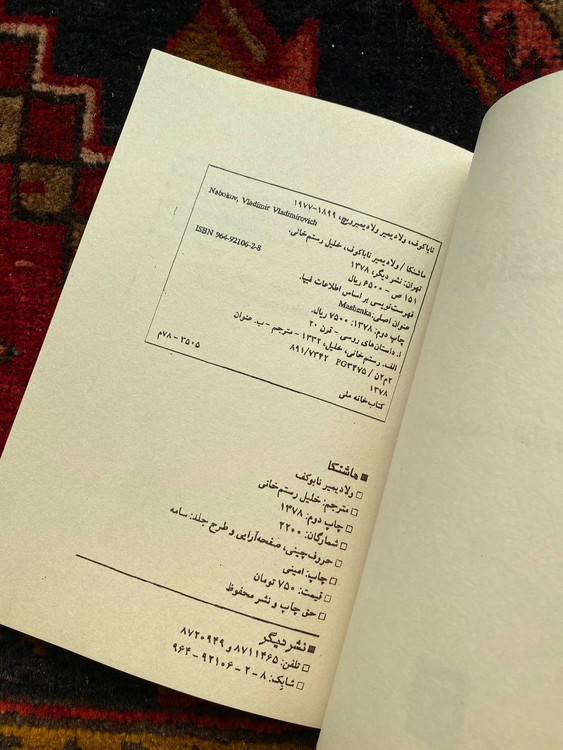 ناباکوف، ولادیمیر ولادیمیرویچ، ۱۸۹۹-۱۹۷۷
Nabokov, Vladimir Vladimirovich
ماشنکا / ولادیمیر ناباکوف، خلیل رستم‌خانی.
تهران: نشر دیگر، ۱۳۷۸
۱۵۱ ص - ۶۵۰۰ ریال
ISBN 964-92106-2-8
فهرست‌نویسی بر اساس اطلاعات فیپا.
عنوان اصلی: Mashenka
چاپ دوم: ۱۳۷۸: ۷۵۰۰ ریال.
۱. داستان‌های روسی - قرن ۲۰
الف. رستم‌خانی، خلیل، ۱۳۳۲ - مترجم - ب. عنوان
۲م۲ن / PG۳۴۷۵ ۸۹۱/۷۳۴۲
۱۳۷۸
کتاب‌خانه ملی
۷۸م - ۳۵۰۵
■ ماشنکا
□ ولادیمیر نابوکف
□ مترجم: خلیل رستم‌خانی
□ چاپ دوم: ۱۳۷۸
□ شمارگان: ۲۲۰۰
□ حروف‌چینی، صفحه‌آرایی و طرح جلد: سامه
□ چاپ: امینی
□ قیمت: ۷۵۰ تومان
□ حق چاپ و نشر محفوظ
■ نشر دیگر
□ تلفن: ۸۷۱۱۴۶۵ و ۸۷۲۰۹۴۹
□ شابک: ۸ - ۲ - ۹۲۱۰۶ - ۹۶۴